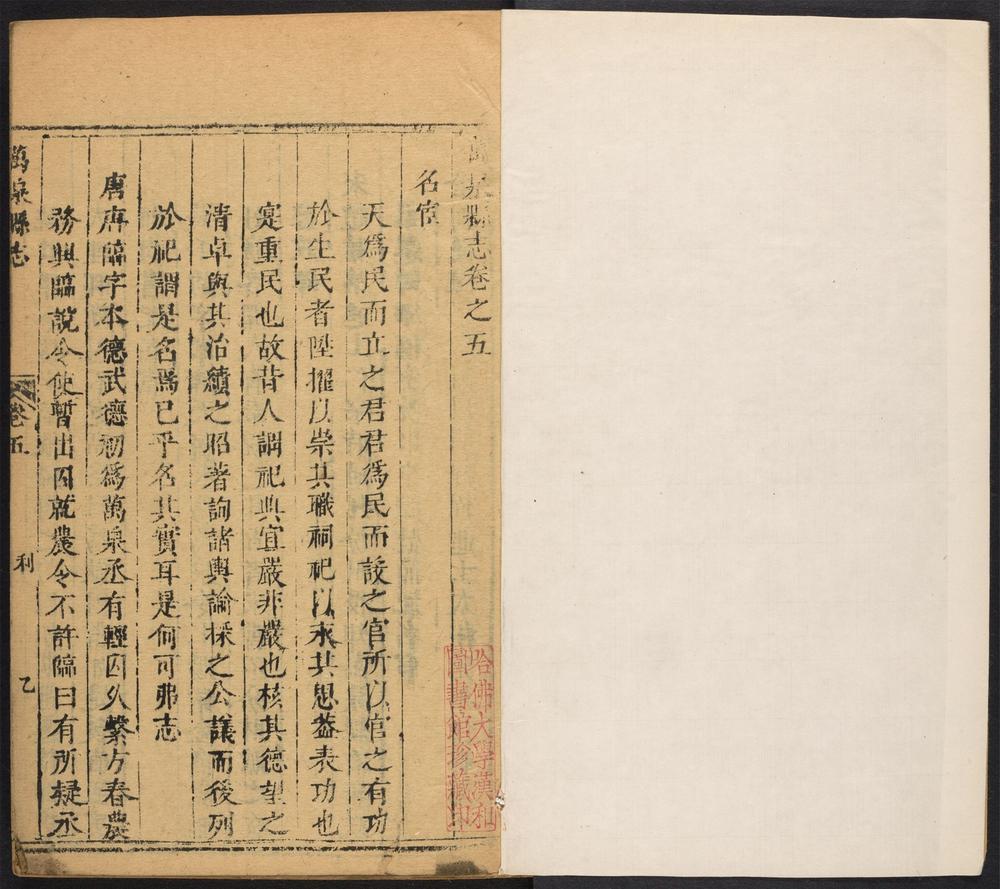 萬泉縣志卷之五
名宦
天爲民而立之君君爲民而設之官所以官之有功
於生民者陞擢以崇其職祠祀以永其思葢表功也
寔重民也故昔人謂祀典宜嚴非嚴也核其德望之
清卓與其治績之昭著詢諸輿論採之公議而後列
於祀謂是名焉已乎名其實耳是何可弗志
唐唐臨字本德武德初爲萬泉丞有輕囚久繫方春農
務興臨說令使暫出囚就農令不許臨曰有所疑丞
萬泉縣志
卷五
利
乙
哈佛大學漢和
圖書館珍藏印